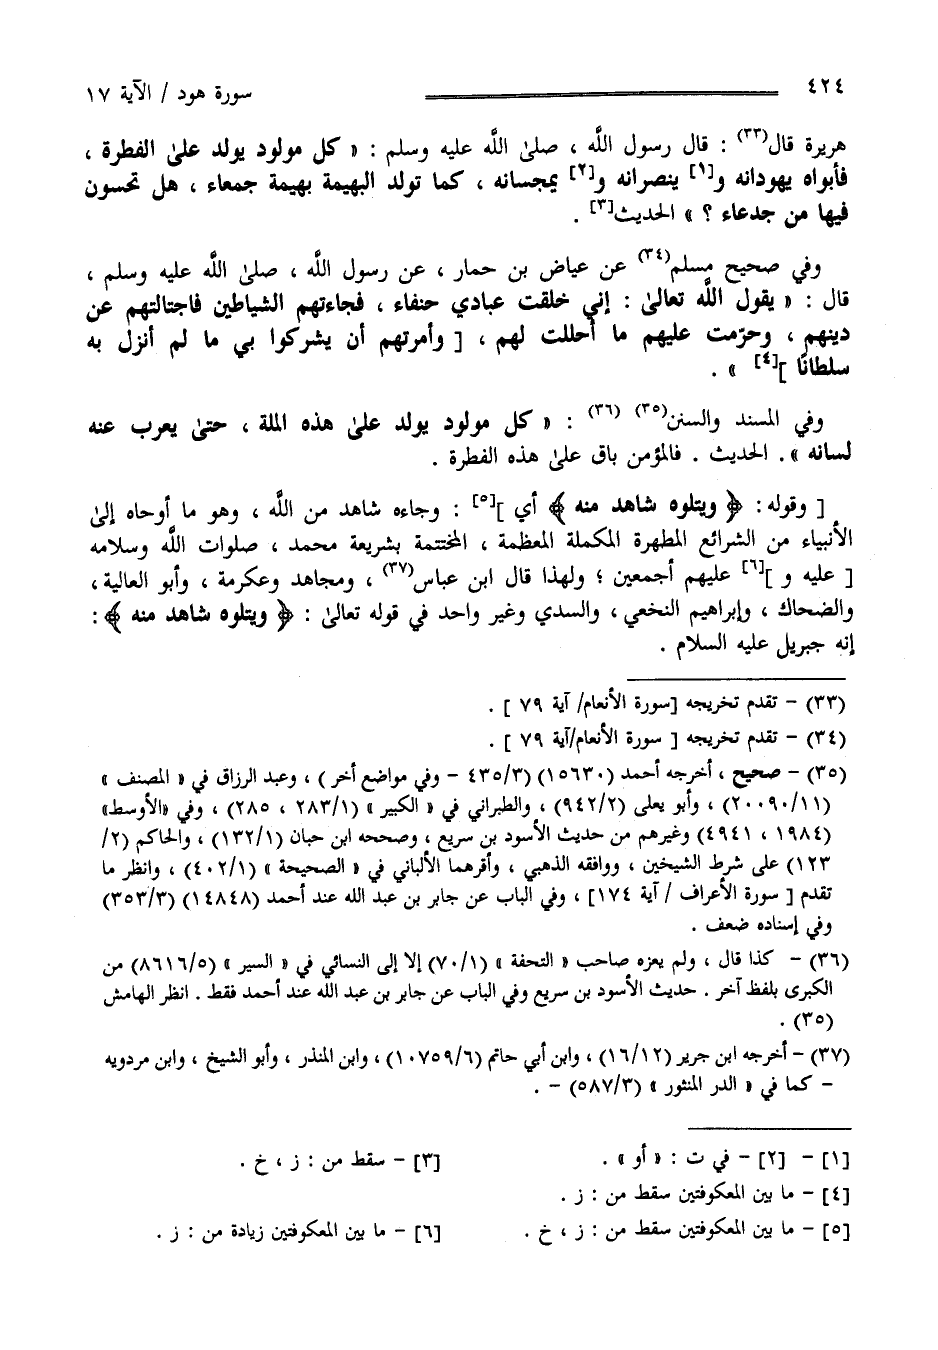 ٤٢٤
سورة هود / الآية ١٧
هريرة قال(٣٣) : قال رسول اللَّه ، صلىٰ اللَّه عليه وسلم : « كل مولود يولد علىٰ الفطرة ،
فأبواه يهودانه و[١] ينصرانه و[٢] يمجسانه ، كما تولد البهيمة بهيمة جمعاء ، هل تحسون
فيها من جدعاء ؟ » الحديث[٣] .
وفي صحيح مسلم(٣٤) عن عياض بن حمار ، عن رسول اللَّه ، صلىٰ اللَّه عليه وسلم ،
قال : « يقول اللَّه تعالىٰ : إني خلقت عبادي حنفاء ، فجاءتهم الشياطين فاجتالتهم عن
دينهم ، وحرّمت عليهم ما أحللت لهم ، [ وأمرتهم أن يشركوا بي ما لم أنزل به
سلطانًا ][٤] » .
وفي المسند والسنن(٣٥) (٣٦) : « كل مولود يولد علىٰ هذه الملة ، حتىٰ يعرب عنه
لسانه » . الحديث . فالمؤمن باق علىٰ هذه الفطرة .
[ وقوله : ﴿ ويتلوه شاهد منه ﴾ أي ][٥] : وجاءه شاهد من اللَّه ، وهو ما أوحاه إلىٰ
الأنبياء من الشرائع المطهرة المكملة المعظمة ، المختتمة بشريعة محمد ، صلوات اللَّه وسلامه
[ عليه و ][٦] عليهم أجمعين ؛ ولهذا قال ابن عباس(٣٧) ، ومجاهد وعكرمة ، وأبو العالية ،
والضحاك ، وإبراهيم النخعي ، والسدي وغير واحد في قوله تعالىٰ : ﴿ ويتلوه شاهد منه ﴾ :
إنه جبريل عليه السلام .
(٣٣) – تقدم تخريجه [سورة الأنعام/ آية ٧٩ ] .
(٣٤) – تقدم تخريجه [ سورة الأنعام/آية ٧٩ ] .
(٣٥) – صحيح ، أخرجه أحمد (١٥٦٣٠) (٤٣٥/٣ – وفي مواضع أخر ) ، وعبد الرزاق في « المصنف »
(٢٠٠٩٠/١١) ، وأبو يعلى (٩٤٢/٢) ، والطبراني في « الكبير » (٢٨٣/١ ، ٢٨٥) ، وفي «الأوسط»
(١٩٨٤ ، ٤٩٤١) وغيرهم من حديث الأسود بن سريع ، وصححه ابن حبان (١٣٢/١) ، والحاكم (٢/
١٢٣) على شرط الشيخين ، ووافقه الذهبي ، وأقرهما الألباني في « الصحيحة » (٤٠٢/١) ، وانظر ما
تقدم [ سورة الأعراف / آية ١٧٤] ، وفي الباب عن جابر بن عبد الله عند أحمد (١٤٨٤٨) (٣٥٣/٣)
وفي إسناده ضعف .
(٣٦) – كذا قال ، ولم يعزه صاحب « التحفة » (٧٠/١) إلا إلى النسائي في « السير » (٨٦١٦/٥) من
الكبرى بلفظ آخر . حديث الأسود بن سريع وفي الباب عن جابر بن عبد الله عند أحمد فقط . انظر الهامش
(٣٥) .
(٣٧) – أخرجه ابن جرير (١٦/١٢) ، وابن أبي حاتم (١٠٧٥٩/٦) ، وابن المنذر ، وأبو الشيخ ، وابن مردويه
– كما في « الدر المنثور » (٥٨٧/٣) – .
[١] – [٢] – في ت : « أو » .
[٣] – سقط من : ز ، خ .
[٤] – ما بين المعكوفتين سقط من : ز .
[٥] – ما بين المعكوفتين سقط من : ز ، خ .
[٦] – ما بين المعكوفتين زيادة من : ز .